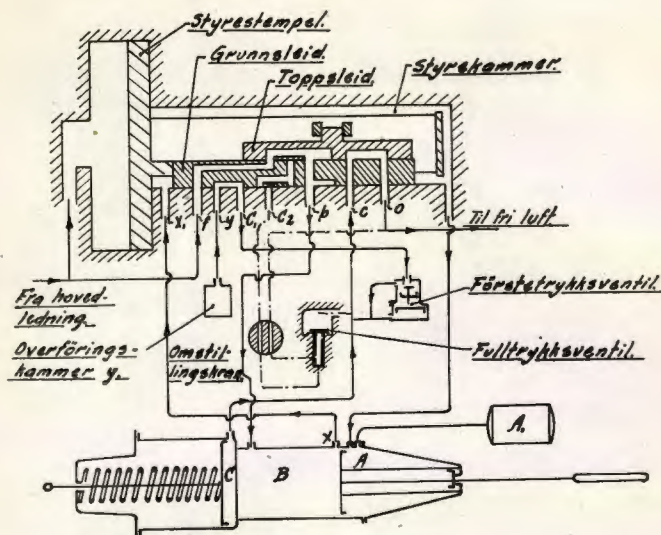 Styrestempel.
Grunnsleid.
Toppsleid.
Styrekammer.
X₁ f y C₁ C₂ b c o
Til fri luft.
Fra hoved-
ledning.
Overförings-
kammer y.
Omstil-
lingskran.
Förstetrykksventil.
Fulltrykksventil.
x
A
A₁
C
B